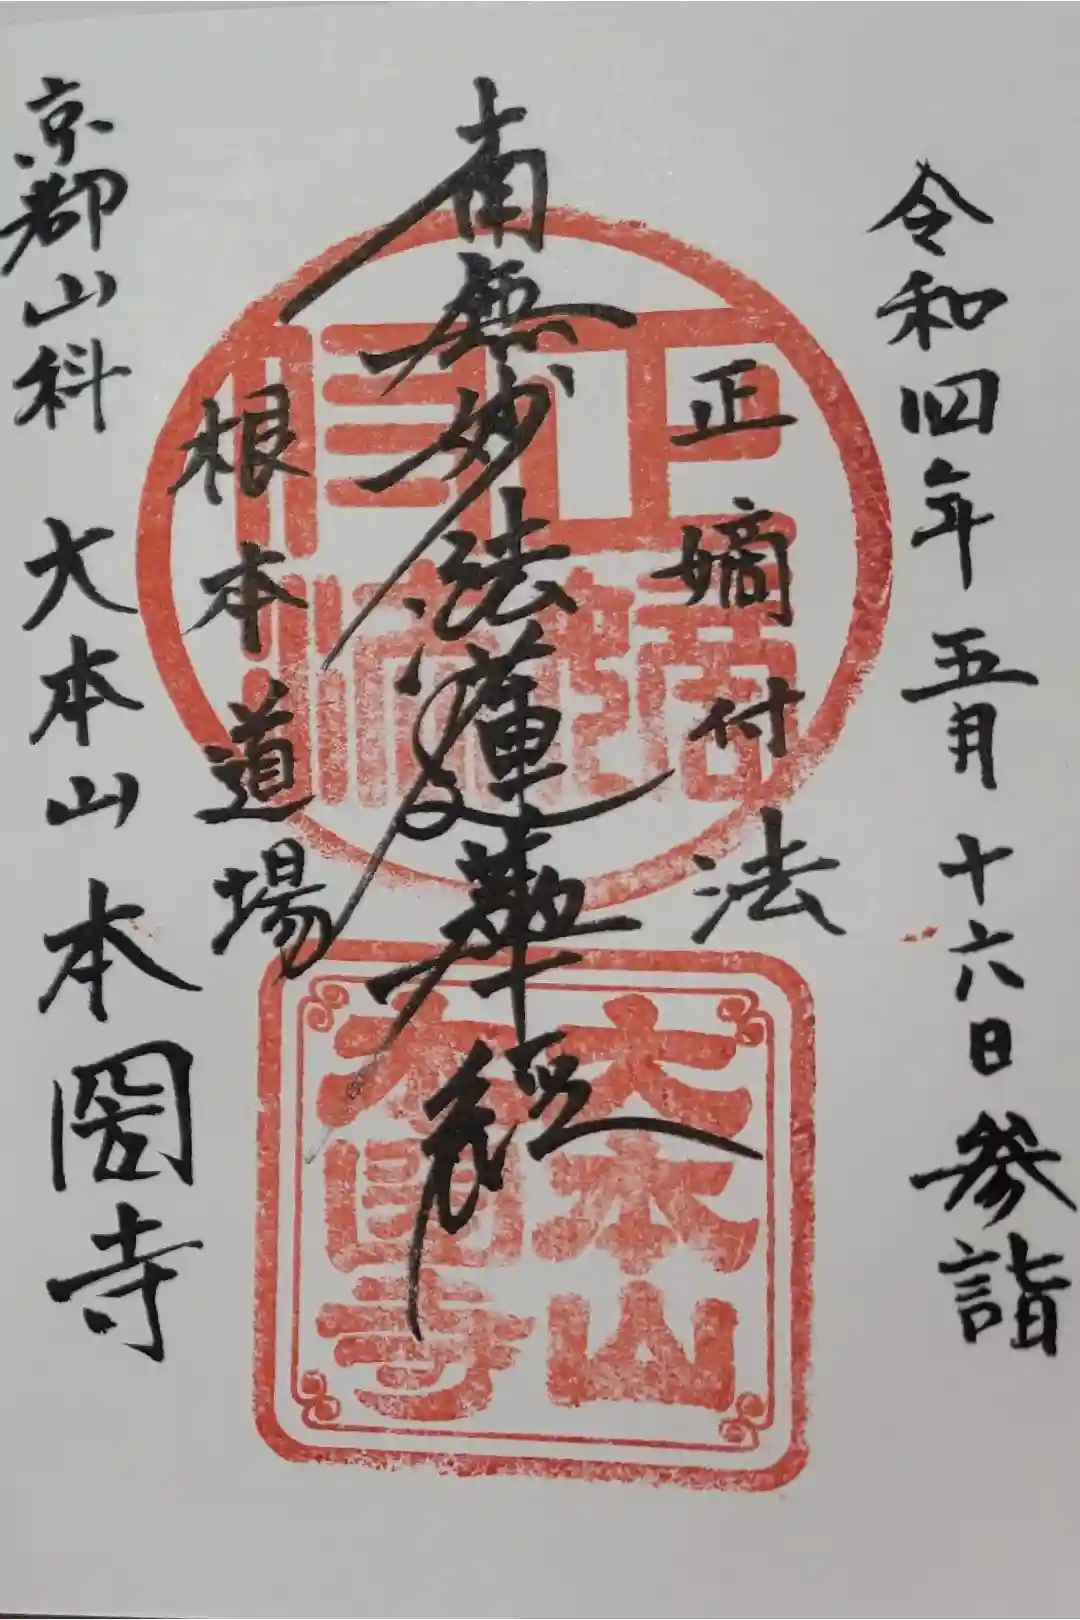 令和四年五月十六日参詣
正嫡付法
南無妙法蓮華経
根本道場
京都山科 大本山 本圀寺
大本山
本圀寺